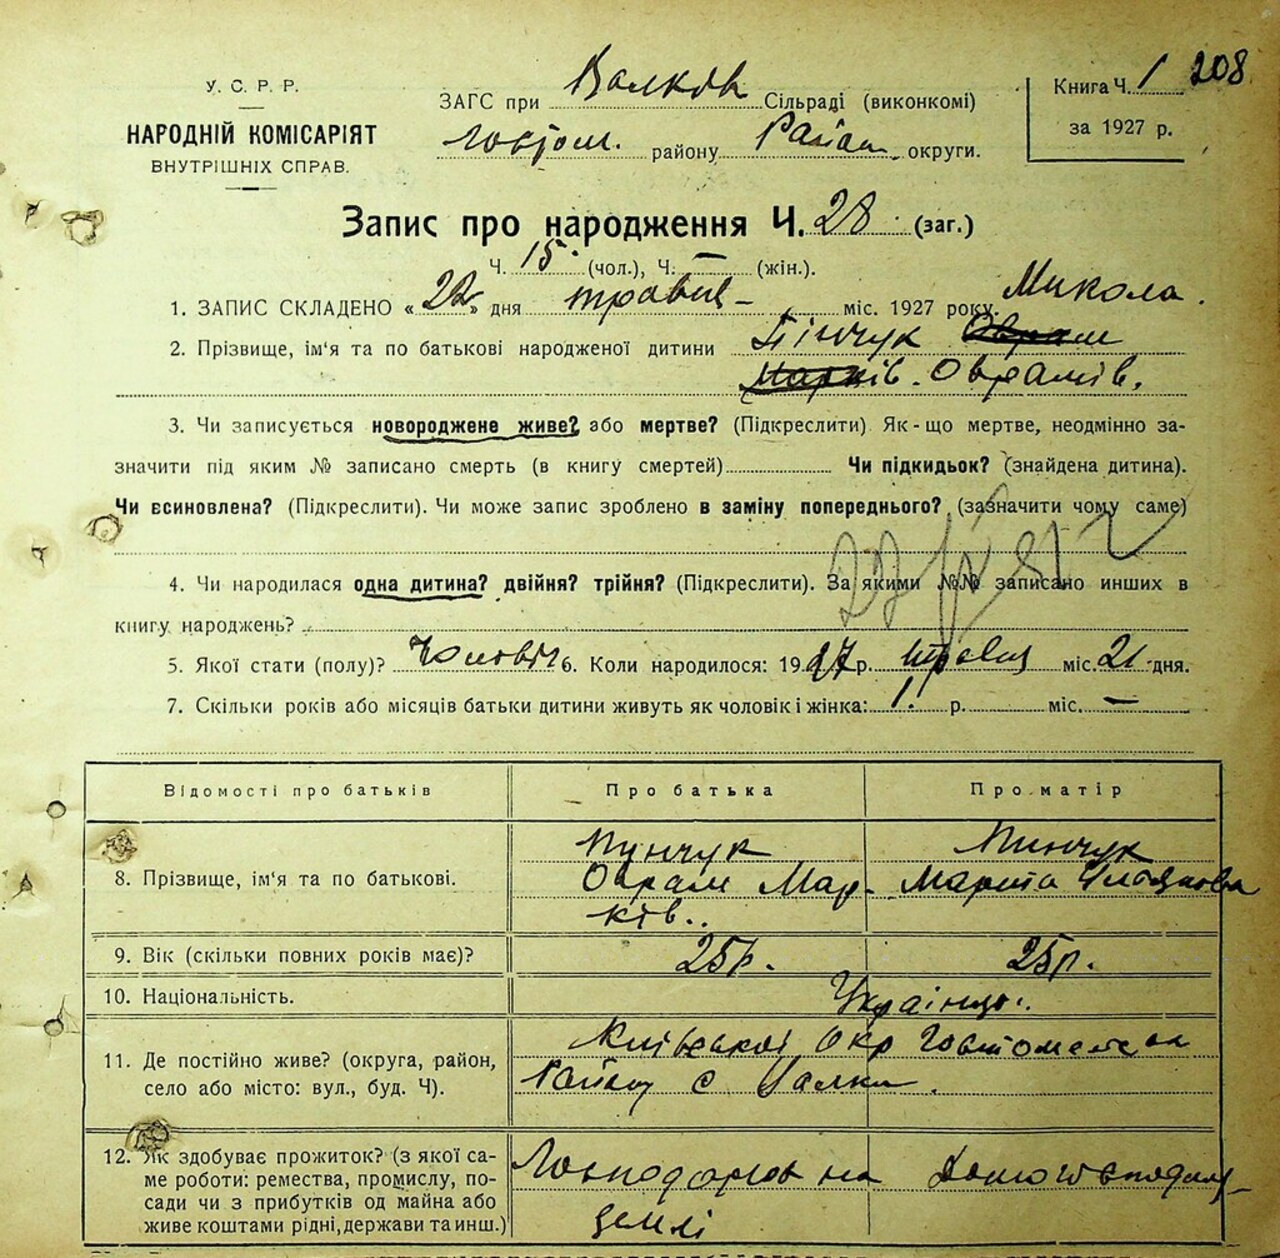 208
У. С. Р. Р.
НАРОДНІЙ КОМІСАРІЯТ
ВНУТРІШНІХ СПРАВ.
ЗАГС при Валков Сільраді (виконкомі)
Гостом. району Район. округи.
Книга Ч. 1
за 1927 р.
Запис про народження Ч. 28 (заг.)
Ч. 15 (чол.), Ч. — (жін.).
1. ЗАПИС СКЛАДЕНО «22» дня травня міс. 1927 року.
Микола.
2. Прізвище, ім'я та по батькові народженої дитини Пінчук Оврам
Марків. Оврамів.
3. Чи записується новороджене живе? або мертве? (Підкреслити) Як-що мертве, неодмінно за-
значити під яким № записано смерть (в книгу смертей) Чи підкидьок? (знайдена дитина).
Чи всиновлена? (Підкреслити). Чи може запис зроблено в заміну попереднього? (зазначити чому саме)
4. Чи народилася одна дитина? двійня? трійня? (Підкреслити). За якими №№ записано инших в
книгу народжень?
5. Якої стати (полу)? Чоловіч 6. Коли народилося: 1927 р. травня міс. 21 дня.
7. Скільки років або місяців батьки дитини живуть як чоловік і жінка: 1. р. міс. —
Відомості про батьків Про батька Про матір
8. Прізвище, ім'я та по батькові.
Пунчук
Оврам Мар-
ків..
Пинчук
Марита
9. Вік (скільки повних років має)? 25 р. 25 р.
10. Національність. Українці.
11. Де постійно живе? (округа, район,
село або місто: вул., буд. Ч).
Київської Окр Гостомельск
Району с Валки.
12. Як здобуває прожиток? (з якої са-
ме роботи: ремества, промислу, по-
сади чи з прибутків од майна або
живе коштами рідні, держави та инш.)
Господарює на
землі